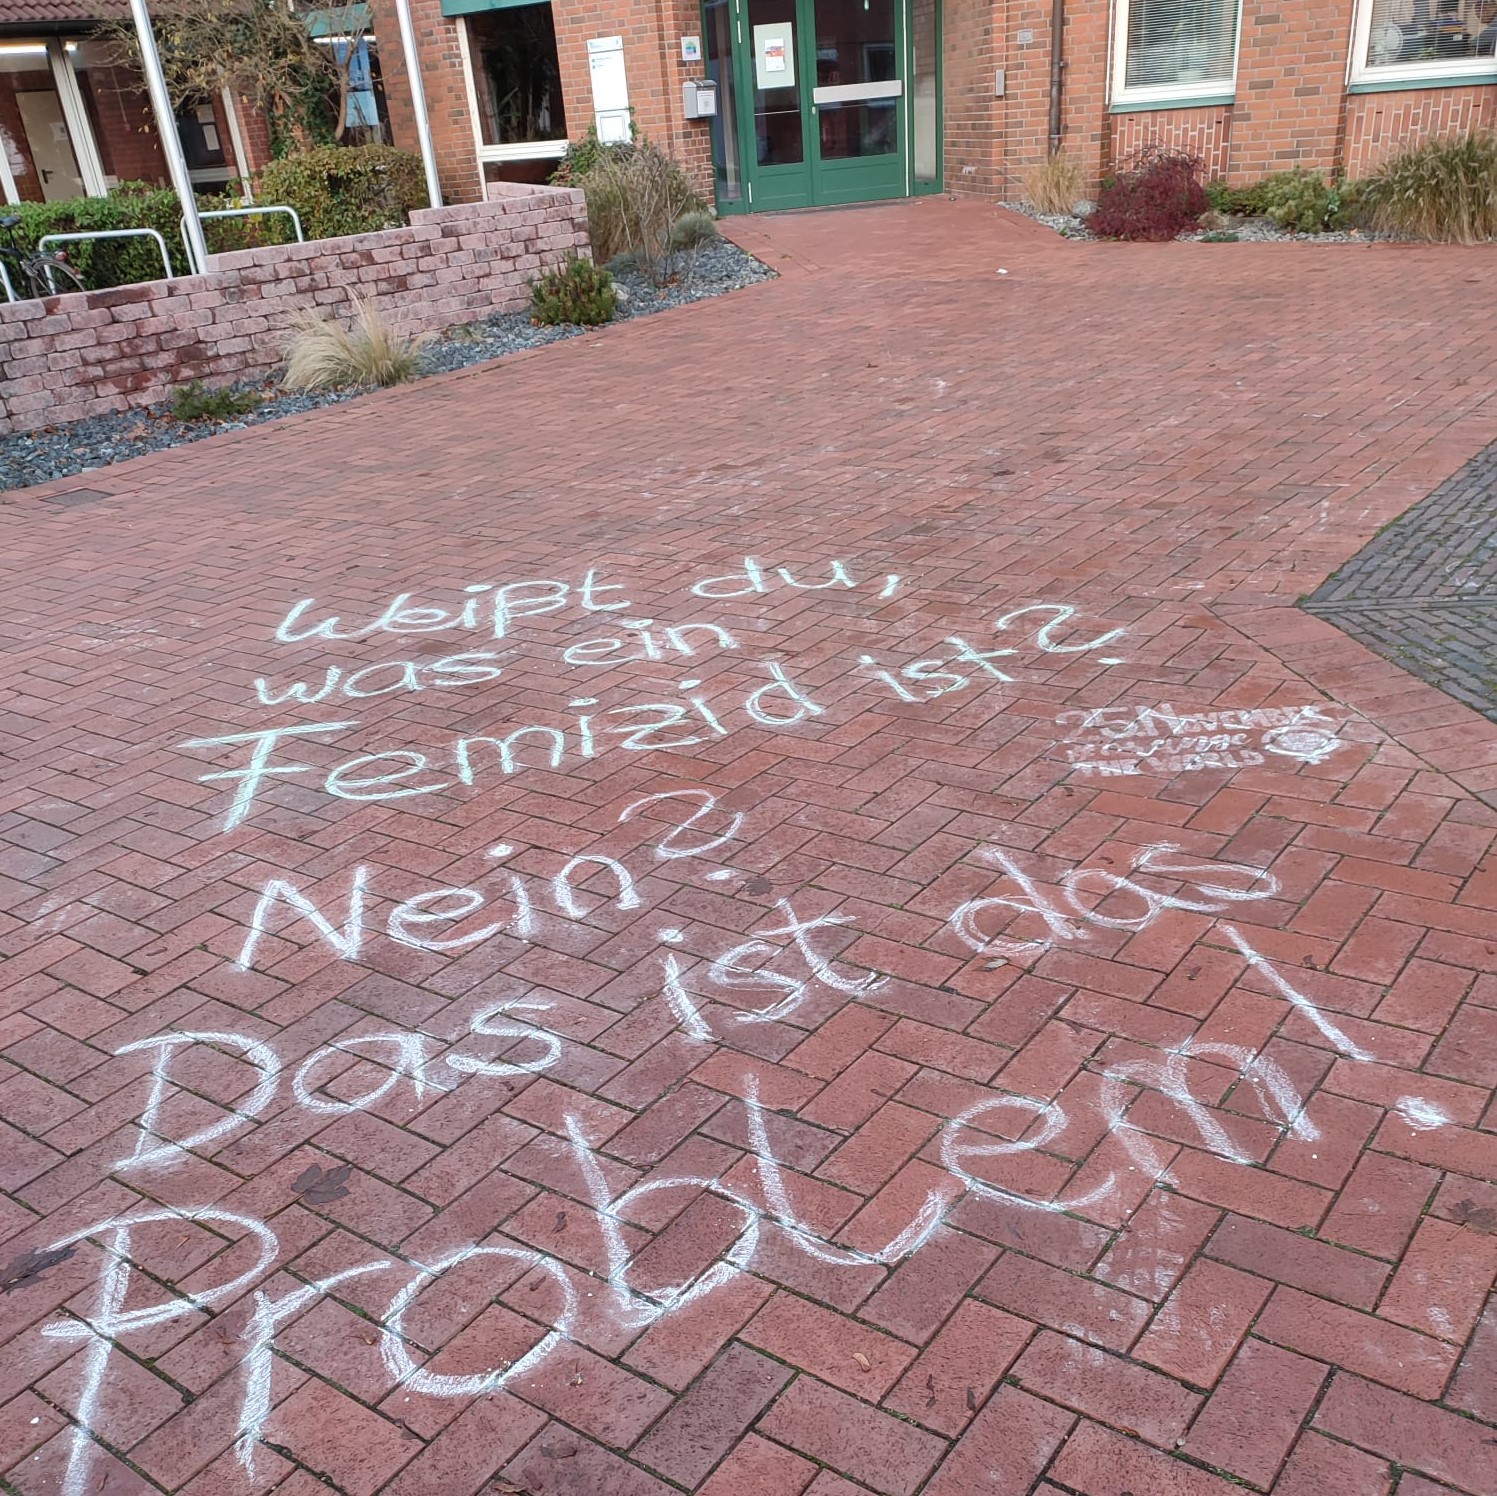 Weißt du,
was ein
Femizid ist?
25. November
Orange
THE WORLD
Nein?
Das ist das
Problem!